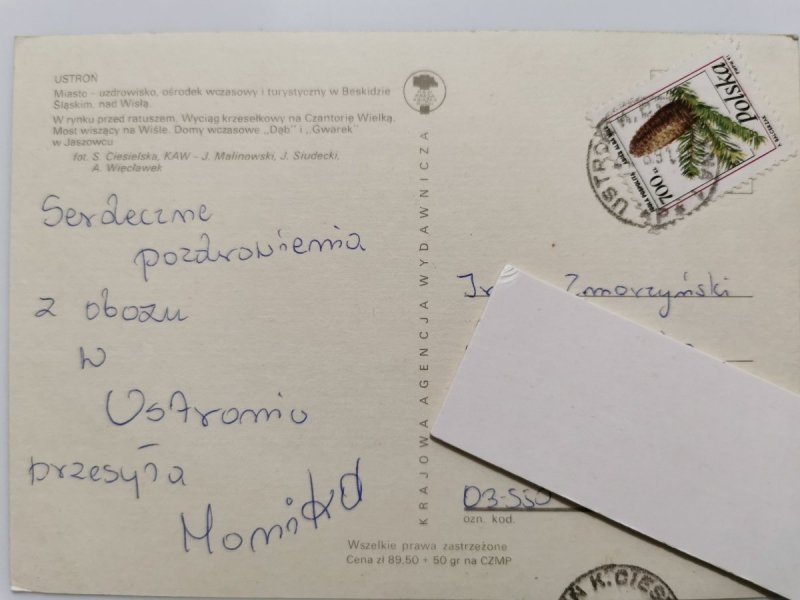 USTROŃ
Miasto - uzdrowisko, ośrodek wczasowy i turystyczny w Beskidzie
Śląskim, nad Wisłą.
W rynku przed ratuszem. Wyciąg krzesełkowy na Czantorię Wielką.
Most wiszący na Wiśle. Domy wczasowe „Dąb" i „Gwarek"
w Jaszowcu
fot. S. Ciesielska, KAW - J. Malinowski, J. Siudecki,
A. Więcławek
Serdeczne
pozdrowienia
z obozu
w
Ustroniu
przesyła
Monika
KRAJOWA AGENCJA WYDAWNICZA
Polska
700 zł
USTROŃ
Zmorzyński
03-550
ozn. kod.
Wszelkie prawa zastrzeżone
Cena zł 89,50 + 50 gr na CZMP
K. CIESZ